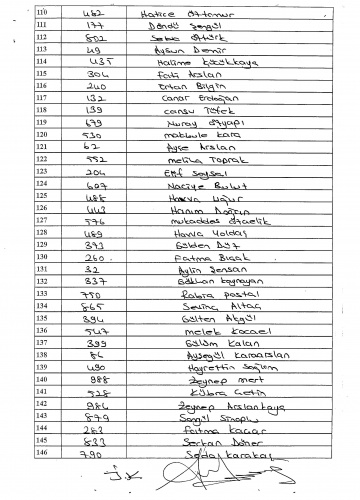 110 462 Hatice Öztomur
111 177 Döndü Şengül
112 802 Seba Öztürk
113 49 Aysun Demir
114 435 Halime Küçükkaya
115 304 Fatı Arslan
116 240 Ertan Bilgin
117 132 Canar Erdoğan
118 139 cansu Tüfek
119 679 Nuray Özyapı
120 530 makbule kara
121 62 Ayşe Arslan
122 552 meliha Toprak
123 204 Elif Soysal
124 607 Naciye Bulut
125 488 Havva Uğur
126 443 Hanım Doğan
127 576 mukaddes özçelik
128 469 Havva Yoldaş
129 373 Gülden Düz
130 260 Fatma Bıçak
131 32 Aylin Şensan
132 337 Gökhan kaynayan
133 750 Rabia postal
134 865 Sevinç Altaş
135 394 Gülten Akgül
136 547 melek Kocael
137 399 Gülüm Kalan
138 86 Ayşegül Karaarslan
139 490 Hayrettin Sağlam
140 988 Zeynep mert
141 528 Kübra Çetin
142 984 Zeynep Arslankaya
143 879 Songül Sinoplu
144 283 Fatma Kaçar
145 833 Serkan Döner
146 790 Seda karakaş